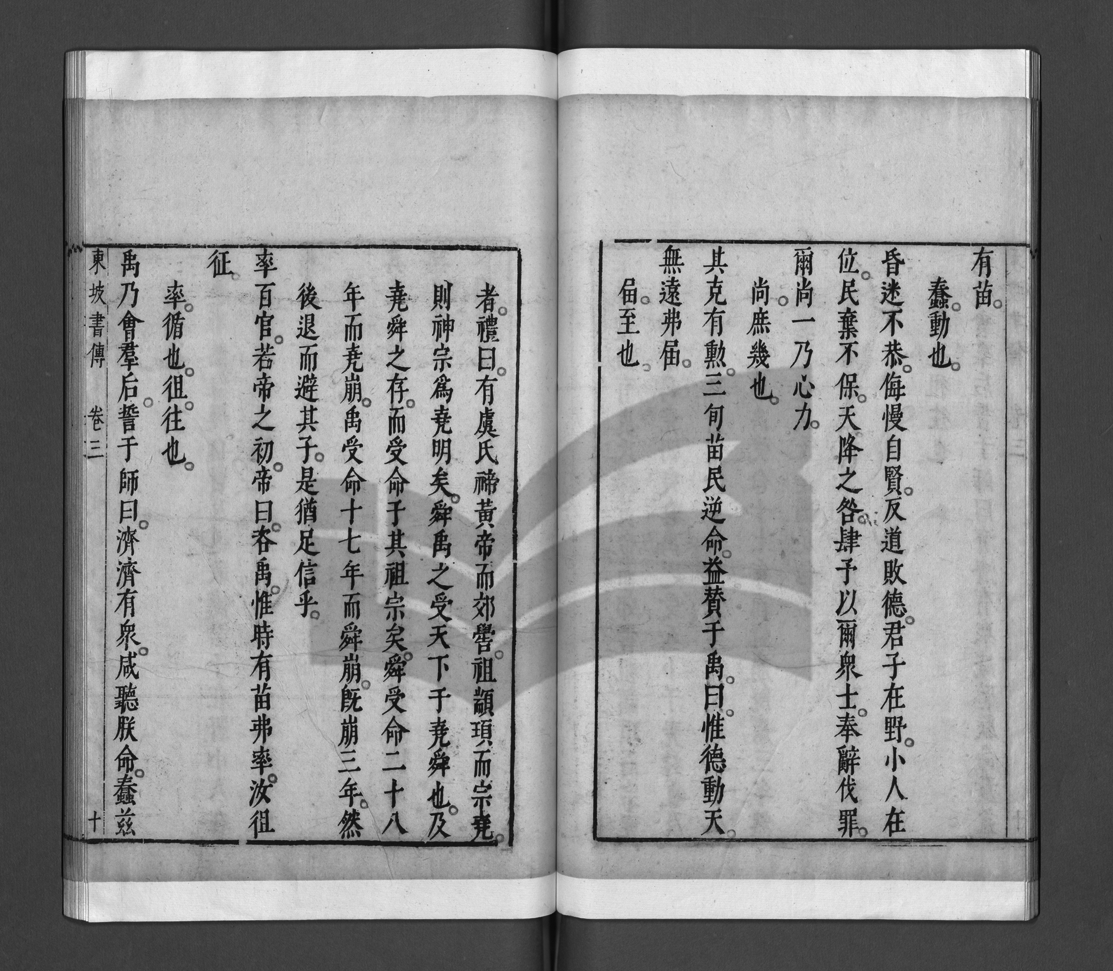 有苗。
蠢。動也。
昏迷不恭。侮慢自賢。反道敗德。君子在野。小人在
位。民棄不保。天降之咎。肆予以爾衆士。奉辭伐罪。
爾尚一乃心力。
尚。庶幾也。
其克有勲。三旬苗民逆命。益贊于禹。曰。惟德動天。
無遠弗届。
届。至也。
者。禮曰。有虞氏禘黃帝而郊嚳。祖顓頊而宗堯。
則神宗爲堯明矣。舜禹之受天下于堯舜也。及
堯舜之存。而受命于其祖宗矣。舜受命二十八
年而堯崩。禹受命十七年而舜崩。旣崩三年。然
後退而避其子。是猶足信乎。
率百官。若帝之初。帝曰。咨禹。惟時有苗弗率。汝徂
征。
率。循也。徂。往也。
禹乃會羣后。誓于師曰。濟濟有衆。咸聽朕命。蠢茲
東坡書傳 卷三 十